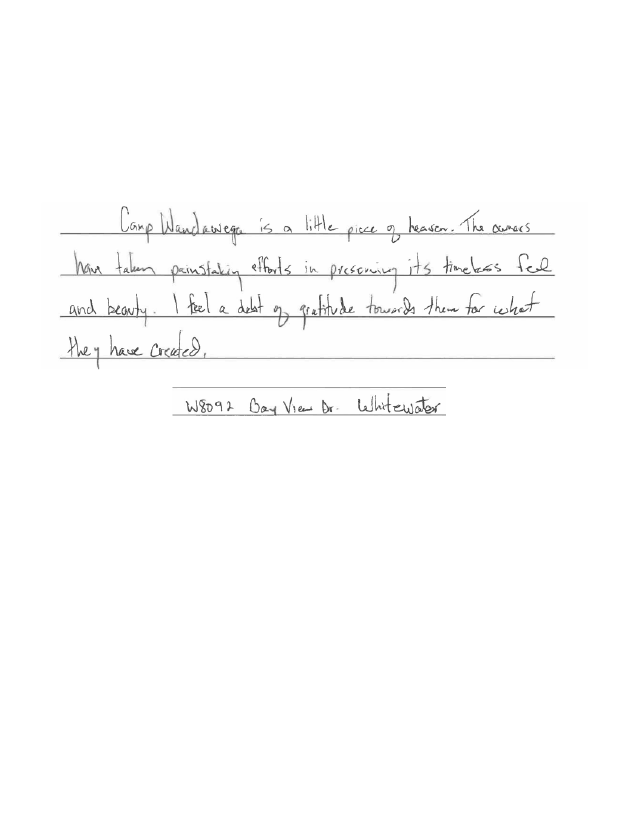 Camp Wandawega is a little piece of heaven. The owners
have taken painstaking efforts in preserving its timeless feel
and beauty. I feel a debt of gratitude towards them for what
they have created.
W8092 Bay View Dr. Whitewater